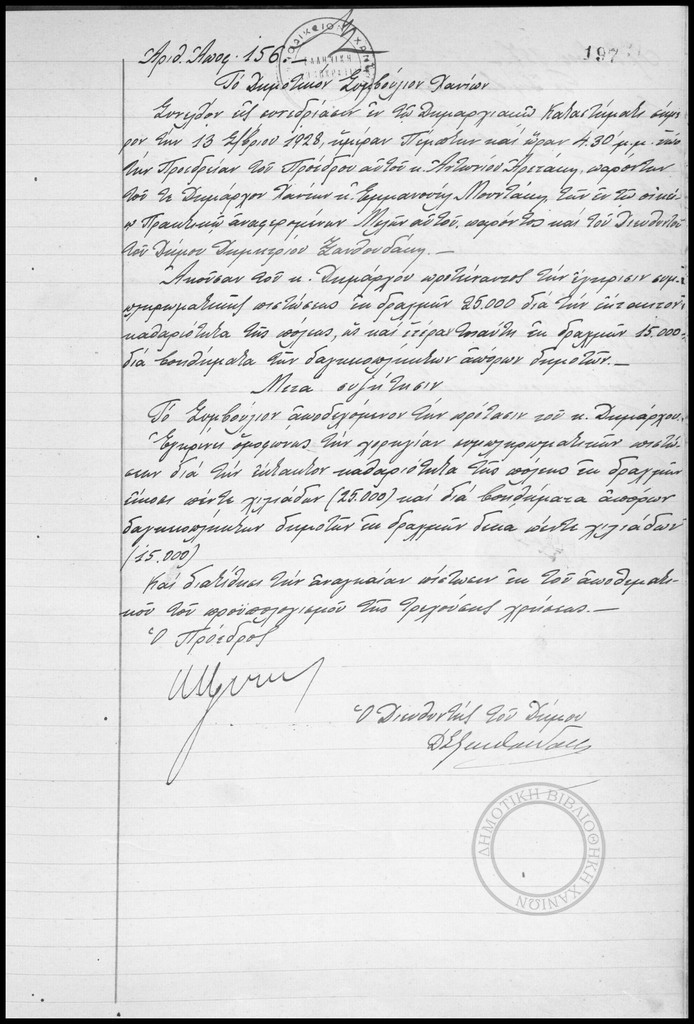 Αριθ. Αποφ. 156.-
197
Το Δημοτικόν Συμβούλιον Χανίων
Συνελθόν εις συνεδρίασιν εν τω Δημαρχιακώ Καταστήματι σήμε-
ρον την 13 7βρίου 1928, ημέραν Πέμπτην και ώραν 4.30' μ.μ. υπό
την Προεδρείαν του Προέδρου αυτού κ. Αντωνίου, παρόντων
του τε Δημάρχου Χανίων κ. Εμμανουήλ Μουντάκη, των εν τω οικεί-
ω Πρακτικώ αναφερομένων Μελών αυτού, παρόντος και του Διευθυντού
του Δήμου Δημητρίου Ξανθουδάκη.-
Ακούσαν του κ. Δημάρχου προτείναντος την έγκρισιν συμ-
πληρωματικής πιστώσεως εκ δραχμών 25.000 διά την έκτακτον
καθαριότητα της πόλεως, ως και ετέραν τοιαύτη εκ δραχμών 15.000
διά βοηθήματα των δαγκειοπλήκτων απόρων δημοτών.-
Μετά συζήτησιν
Το Συμβούλιον αποδεχόμενον την πρότασιν του κ. Δημάρχου.
Εγκρίνει ομοφώνως την χορηγίαν συμπληρωματικών πιστώ-
σεων διά την έκτακτον καθαριότητα της πόλεως εκ δραχμών
είκοσι πέντε χιλιάδων (25.000) και διά βοηθήματα απόρων
δαγκειοπλήκτων δημοτών εκ δραχμών δέκα πέντε χιλιάδων
(15.000)
Και διατίθησι την αναγκαίαν πίστωσιν εκ του αποθεματι-
κού του προϋπολογισμού της τρεχούσης χρήσεως.-
Ο Πρόεδρος
Ο Διευθυντής του Δήμου
ΔΞανθουδάκης
ΔΗΜΟΤΙΚΗ ΒΙΒΛΙΟΘΗΚΗ ΧΑΝΙΩΝ